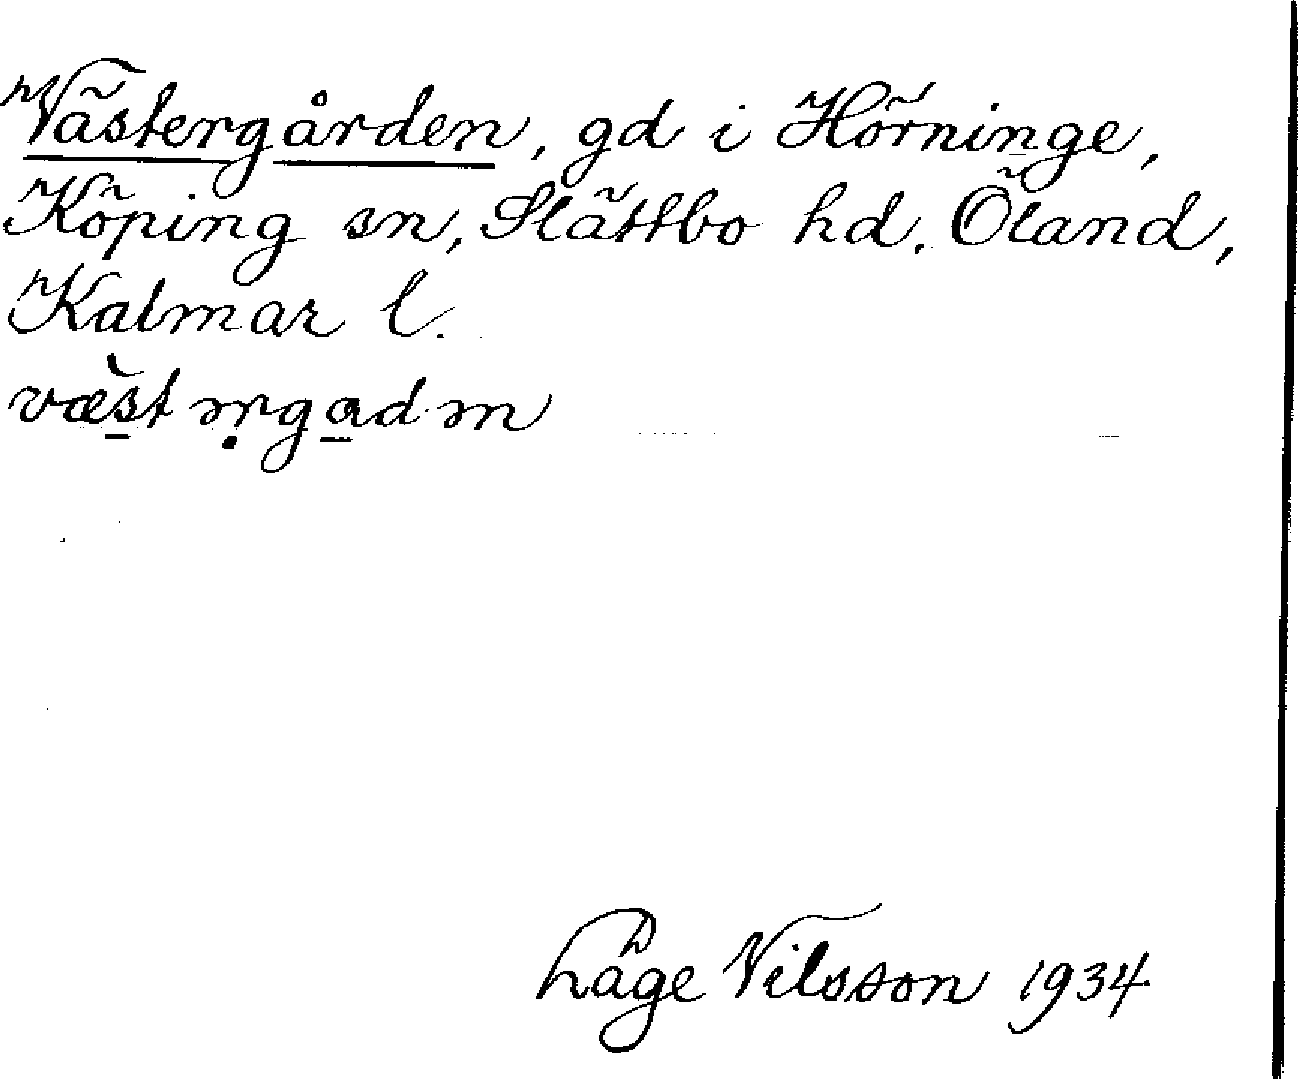 Västergården, gd i Hörninge,
Köping sn, Slättbo hd. Öland,
Kalmar l.
Låge Nilsson 1934